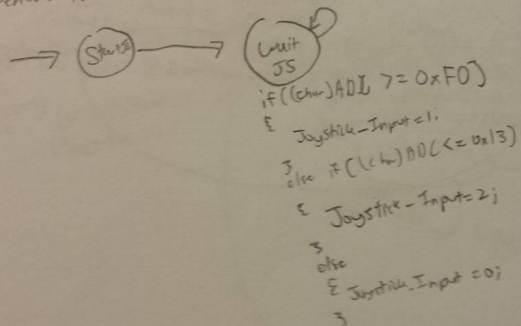 Start
Wait
JS
if((char)ADC >= 0xF0)
{
Joystick_Input=1;
}
else if((char)ADC<=0x13)
{
Joystick_Input=2;
}
else
{ Joystick_Input=0;
}